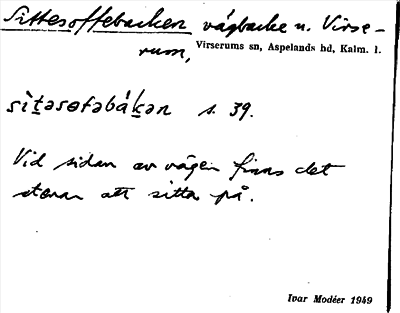 Sittesoffebacken vägbacke n. Virse-
rum, Virserums sn, Aspelands hd, Kalm. l.
sìt̠əsɵfəbák̠ən s. 39.
Vid sidan av vägen finns det
stenar att sitta på.
Ivar Modéer 1949